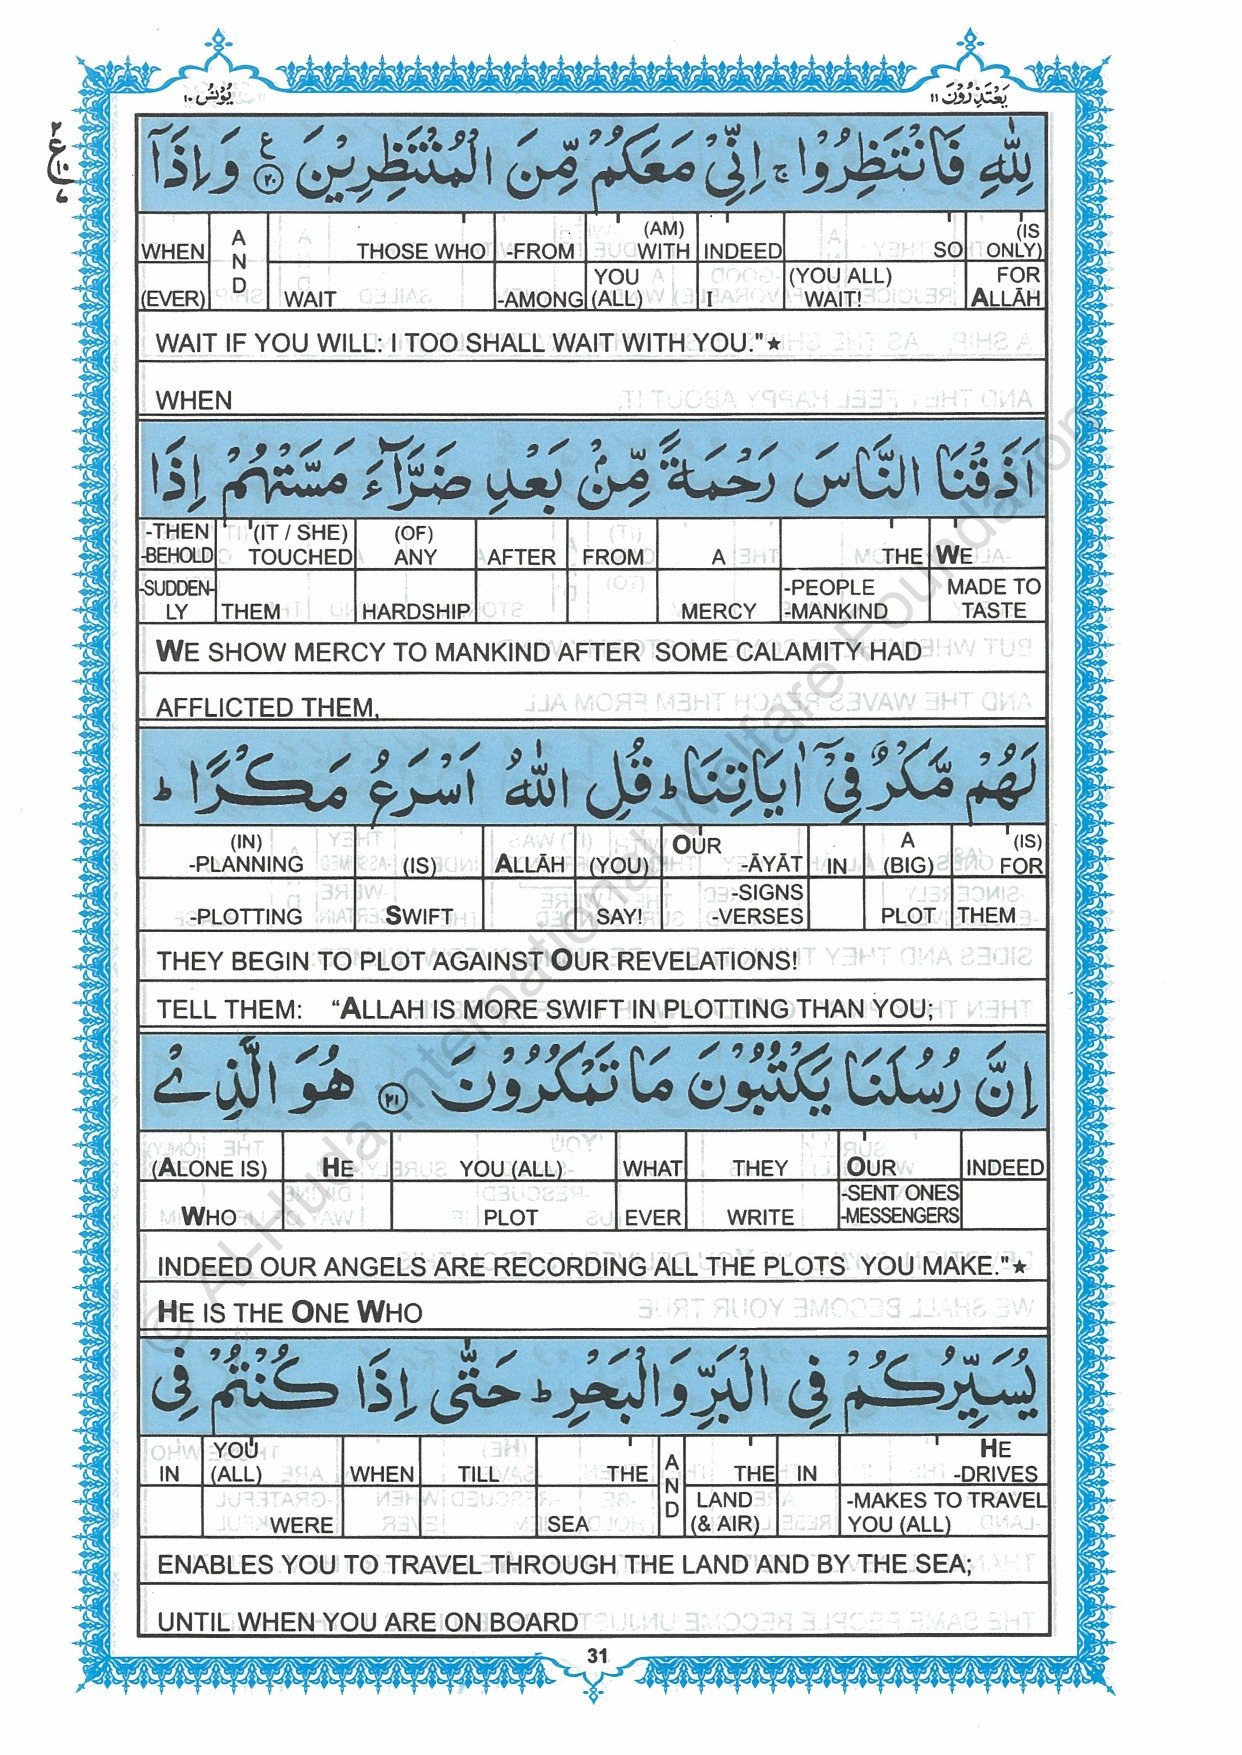 يَعْتَذِرُوْنَ ١١
يُوْنُسُ ١٠
لِلّٰهِ فَانْتَظِرُوْا ۚ اِنِّيْ مَعَكُمْ مِّنَ الْمُنْتَظِرِيْنَ ۟ ٢٠ ع وَ اِذَآ
WHEN A N D THOSE WHO -FROM (AM) WITH INDEED SO (IS ONLY)
(EVER) WAIT -AMONG YOU (ALL) I (YOU ALL) WAIT! FOR ALLĀH
WAIT IF YOU WILL: I TOO SHALL WAIT WITH YOU."★
WHEN
اَذَقْنَا النَّاسَ رَحْمَةً مِّنْۢ بَعْدِ ضَرَّآءَ مَسَّتْهُمْ اِذَا
-THEN -BEHOLD (IT / SHE) TOUCHED (OF) ANY AFTER FROM A THE WE
-SUDDEN-LY THEM HARDSHIP MERCY -PEOPLE -MANKIND MADE TO TASTE
WE SHOW MERCY TO MANKIND AFTER SOME CALAMITY HAD
AFFLICTED THEM,
لَهُمْ مَّكْرٌ فِيْٓ اٰيَاتِنَا ؕ قُلِ اللّٰهُ اَسْرَعُ مَكْرًا ؕ
(IN) -PLANNING (IS) ALLĀH (YOU) OUR -ĀYĀT IN A (BIG) (IS) FOR
-PLOTTING SWIFT SAY! -SIGNS -VERSES PLOT THEM
THEY BEGIN TO PLOT AGAINST OUR REVELATIONS!
TELL THEM: “ALLAH IS MORE SWIFT IN PLOTTING THAN YOU;
اِنَّ رُسُلَنَا يَكْتُبُوْنَ مَا تَمْكُرُوْنَ ٢١ هُوَ الَّذِيْ
(ALONE IS) HE YOU (ALL) WHAT THEY OUR INDEED
WHO PLOT EVER WRITE -SENT ONES -MESSENGERS
INDEED OUR ANGELS ARE RECORDING ALL THE PLOTS YOU MAKE."★
HE IS THE ONE WHO
يُسَيِّرُكُمْ فِي الْبَرِّ وَالْبَحْرِ ؕ حَتّٰى اِذَا كُنْتُمْ فِي
IN YOU (ALL) WHEN TILL THE A N D THE IN HE -DRIVES
WERE SEA LAND (& AIR) -MAKES TO TRAVEL YOU (ALL)
ENABLES YOU TO TRAVEL THROUGH THE LAND AND BY THE SEA;
UNTIL WHEN YOU ARE ON BOARD
31
© Al-Huda International Welfare Foundation